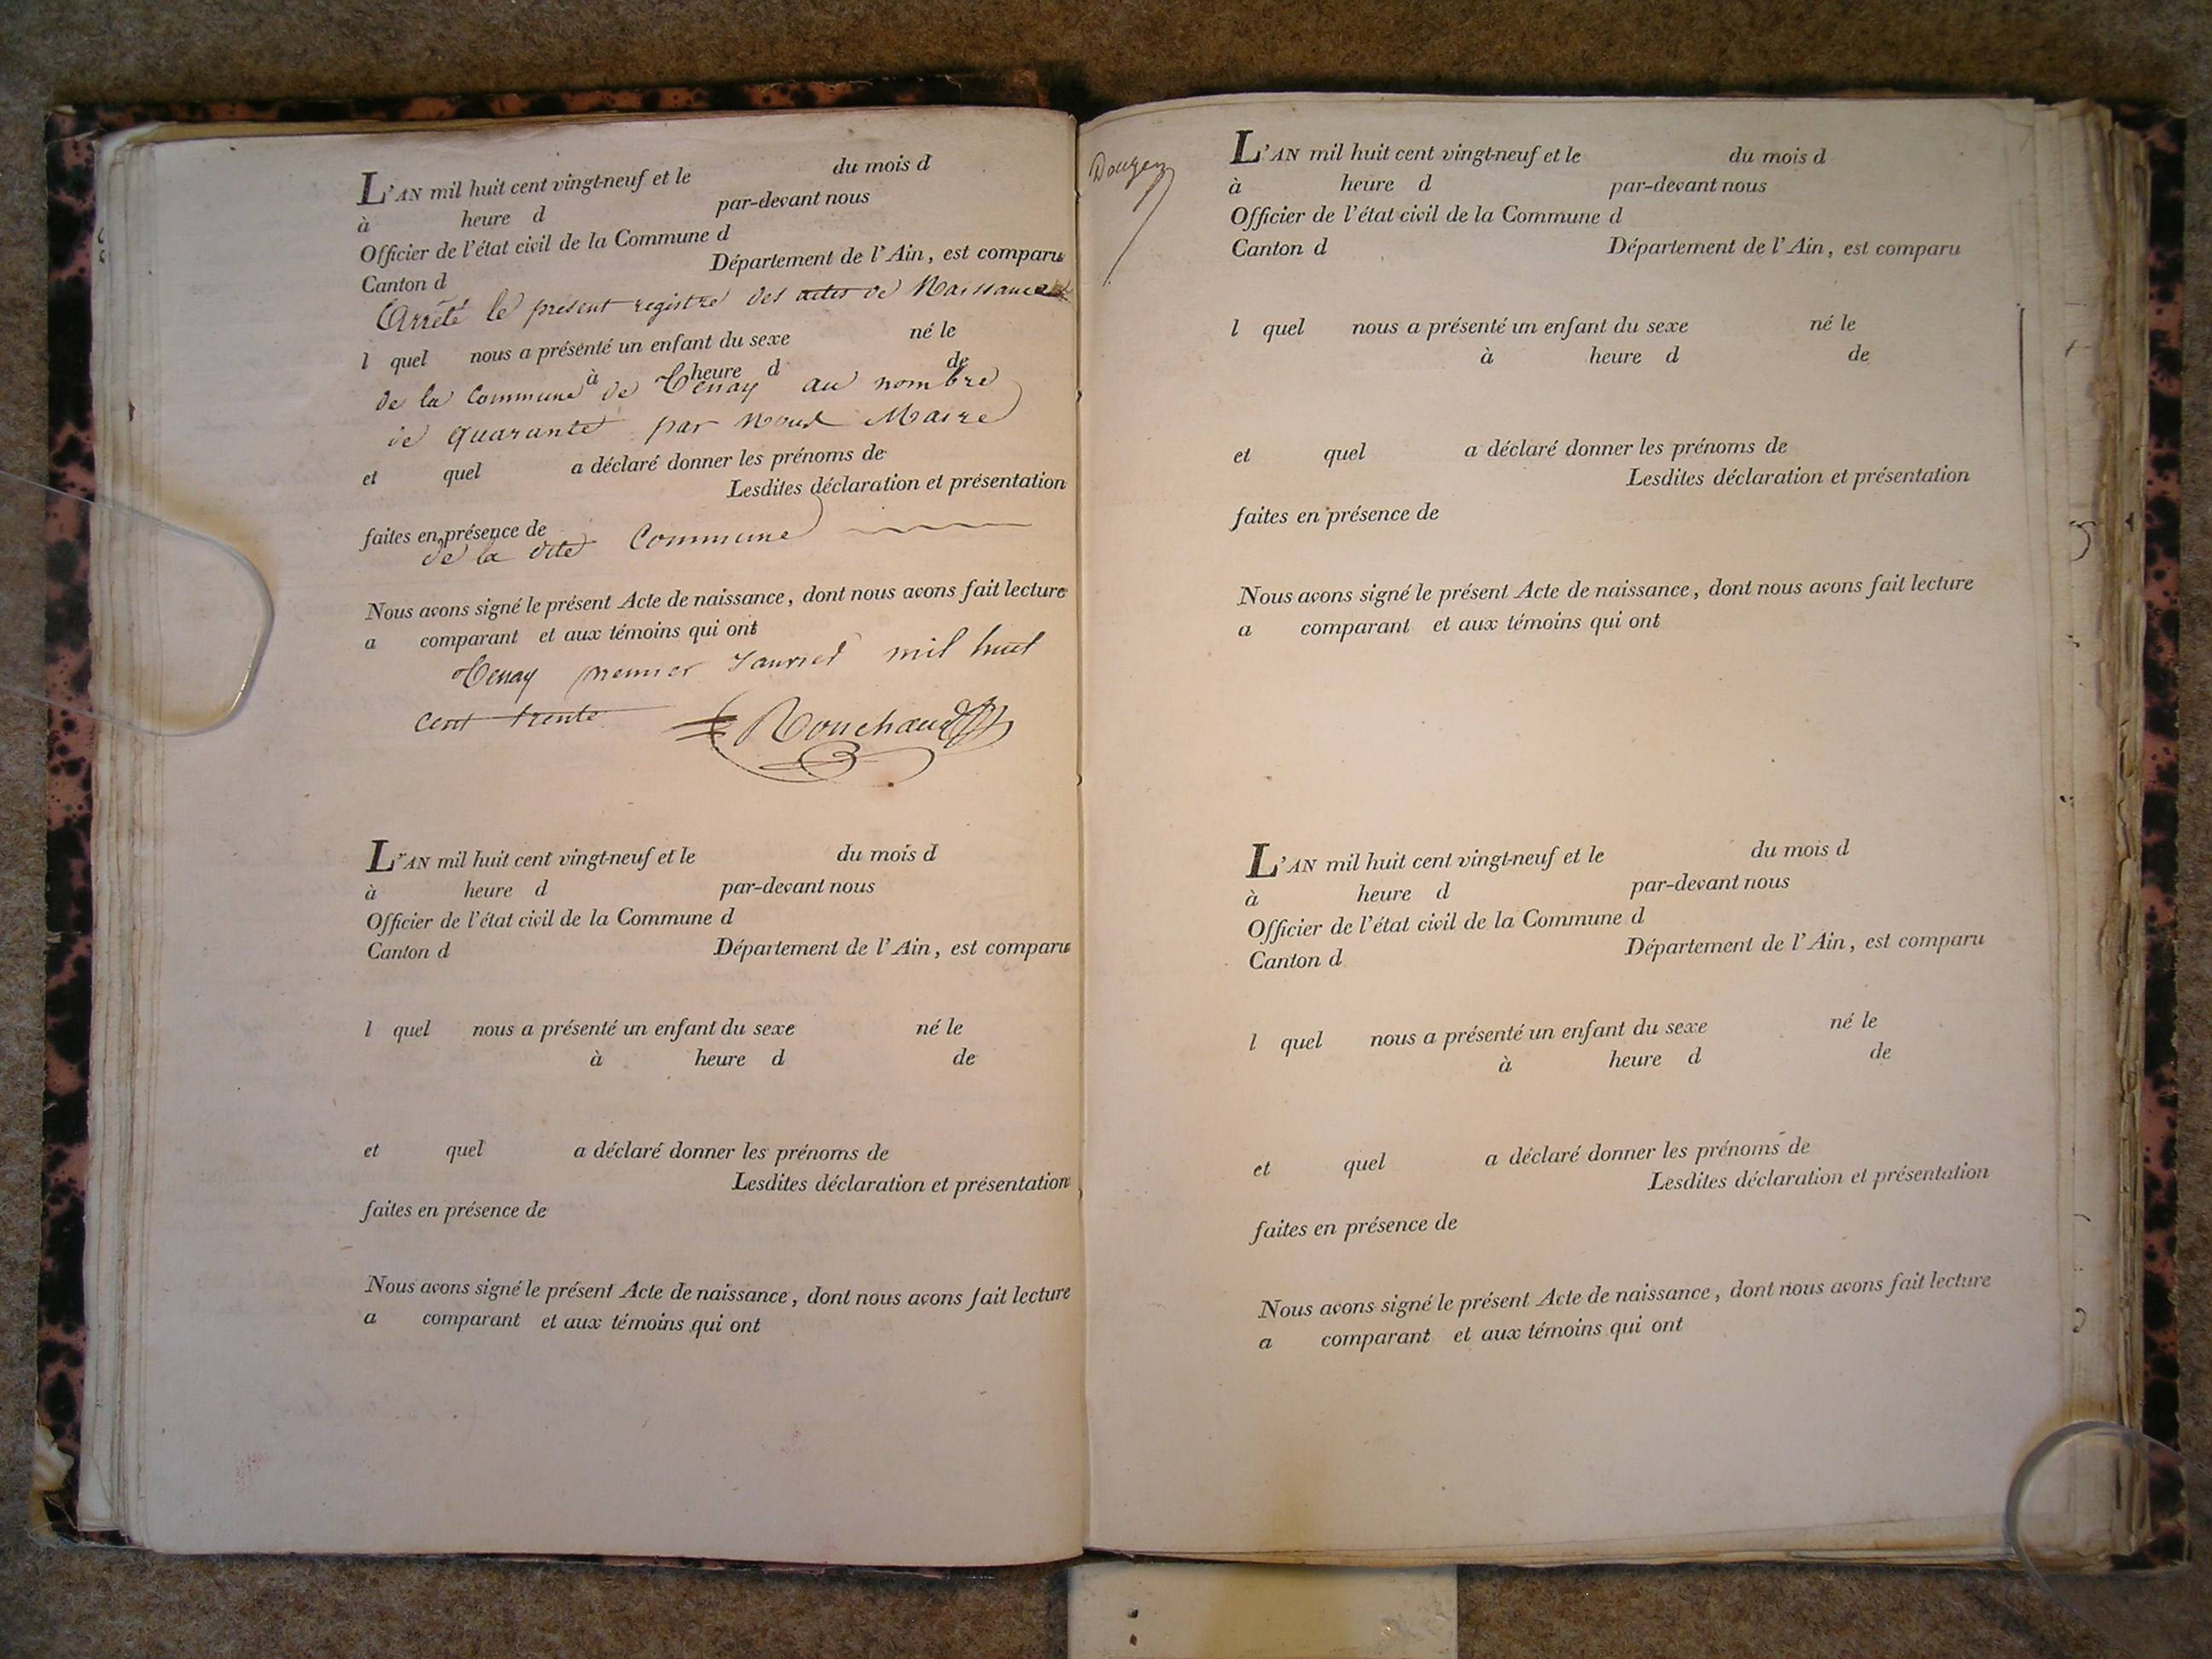 L'AN mil huit cent vingt-neuf et le du mois d
à heure d par-devant nous
Officier de l'état civil de la Commune d
Canton d Département de l'Ain, est comparu
Arrêté le présent registre des actes de Naissances
l quel nous a présenté un enfant du sexe né le
à heure d de
de la Commune de Tenay au nombre
de quarante par Nous Maire
et quel a déclaré donner les prénoms de
Lesdites déclaration et présentation
faites en présence de
de la dite Commune
Nous avons signé le présent Acte de naissance, dont nous avons fait lecture
a comparant et aux témoins qui ont
Tenay premier Janvier mil huit
cent trente Rouchaud
L'AN mil huit cent vingt-neuf et le du mois d
à heure d par-devant nous
Officier de l'état civil de la Commune d
Canton d Département de l'Ain, est comparu
l quel nous a présenté un enfant du sexe né le
à heure d de
et quel a déclaré donner les prénoms de
Lesdites déclaration et présentation
faites en présence de
Nous avons signé le présent Acte de naissance, dont nous avons fait lecture
a comparant et aux témoins qui ont
L'AN mil huit cent vingt-neuf et le du mois d
à heure d par-devant nous
Officier de l'état civil de la Commune d
Canton d Département de l'Ain, est comparu
l quel nous a présenté un enfant du sexe né le
à heure d de
et quel a déclaré donner les prénoms de
Lesdites déclaration et présentation
faites en présence de
Nous avons signé le présent Acte de naissance, dont nous avons fait lecture
a comparant et aux témoins qui ont
L'AN mil huit cent vingt-neuf et le du mois d
à heure d par-devant nous
Officier de l'état civil de la Commune d
Canton d Département de l'Ain, est comparu
l quel nous a présenté un enfant du sexe né le
à heure d de
et quel a déclaré donner les prénoms de
Lesdites déclaration et présentation
faites en présence de
Nous avons signé le présent Acte de naissance, dont nous avons fait lecture
a comparant et aux témoins qui ont